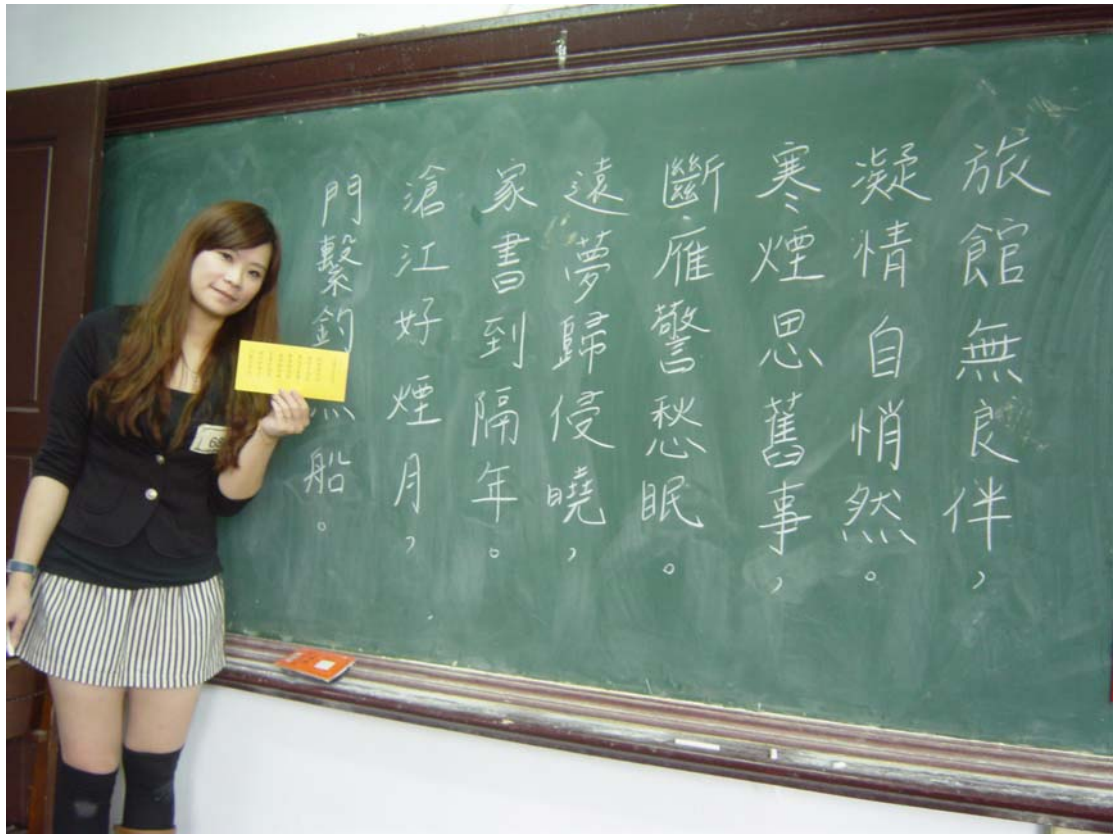 旅館無良伴,
凝情自悄然。
寒煙思舊事,
斷雁警愁眠。
遠夢歸侵曉,
家書到隔年。
滄江好煙月,
門繫釣船。